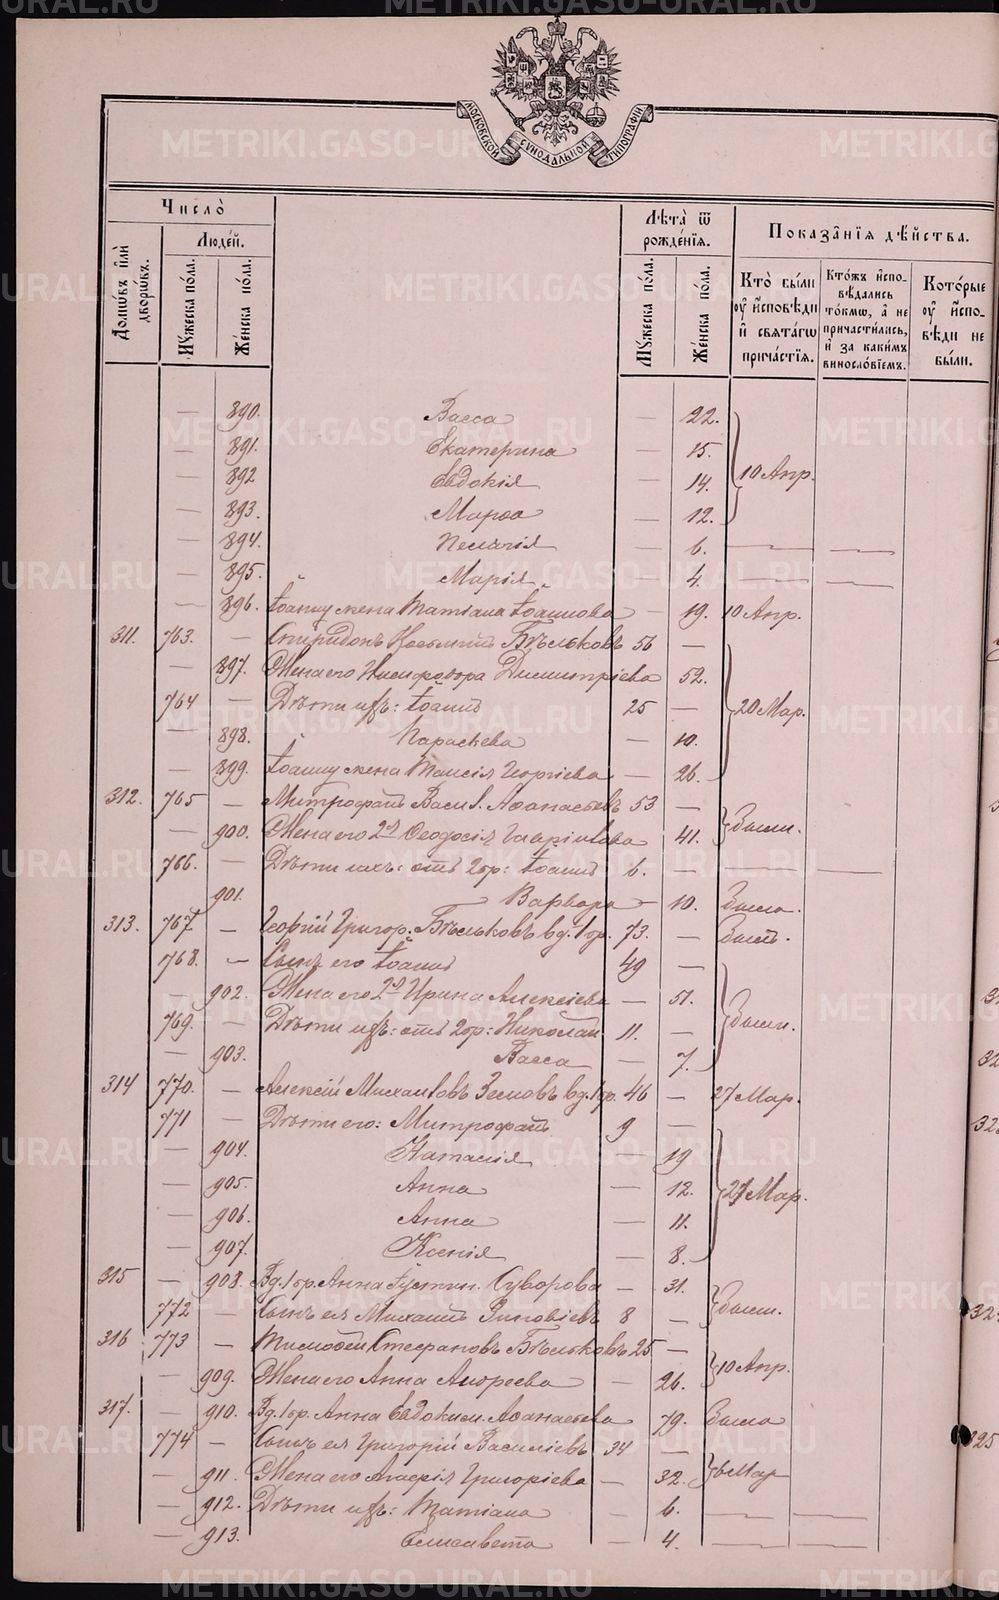 МОСКОВСКОЙ СѴНОДАЛЬНОЙ ТИПОГРАФІИ
Число̀
Людéй.
Домѡвъ и҆лѝ дворѡ́въ.
Мꙋ́жеска по́ла.
Же́нска по́ла.
Лѣ́та ѿ рожде́нїя.
Мꙋ́жеска по́ла.
Же́нска по́ла.
Показа̑нїя дѣ́йства.
Кто̀ бы́ли ᲂу҆ и҆сповѣди и҆ свята́гѡ прича́стїя.
Кто́жъ и҆спо-вѣ́дались то́кмѡ, а҆ не причасти́лись, и҆ за каки́мъ винослові́емъ.
Кото́рые ᲂу҆ и҆спо-вѣди не бы́ли.
— 890. Васса — 22.
— 891. Екатерина — 15.
— 892 Евдокія — 14. 10 Апр.
— 893. Марѳа — 12.
— 894. Пелагія — 6. — —
— 895. Марія — 4. — —
— 896. Іоанну жена Татіана Іоаннова — 19. 10 Апр.
311. 763. — Спиридонъ Бѣльковъ 56 —
— 897. Жена его Никифора Димитріева 52.
764 — Дѣти ихъ: Іоаннъ 25 — 20 Мар.
— 898. Параскева — 10.
— 899. Іоанну жена Таисія Георгіева — 26.
312. 765 — Митрофанъ Васил. Аѳанасьевъ 53 —
— 900. Жена его 2я Ѳеодосія Гаврилова 41. Были.
766. — Дѣти ихъ: отъ 2 бр: Іоаннъ 6. — — —
901. Варвара — 10. Была.
313. 767. — Георгій Григор. Бѣльковъ вд. 1 бр. 73. — Былъ.
768. — Сынъ его Іоаннъ 49 —
— 902. Жена его 2я Ирина Алексіева — 51. Были.
769. — Дѣти ихъ: отъ 2 бр: Николай 11. —
— 903. Васса — 7.
314 770. — Алексій Михаиловъ Земовъ вд. 1 бр. 46 — 27 Мар.
771 — Дѣти его: Митрофанъ 9 —
— 904. Наталія — 19
— 905. Анна — 12. 27 Мар.
— 906. Анна — 11.
— 907. Ксенія — 8.
315 — 908. Вд. 1 бр. Анна Іустин. Суворова — 31.
772 — Сынъ ея Михаилъ Зиновіевъ 8 — Были.
316 773 — Тимоѳей Стефановъ Бѣльковъ 25 —
— 909. Жена его Анна Андреева — 26. 10 Апр.
317. — 910. Вд. 1 бр. Анна Евдоким. Аѳанасьева 79. Была
774 — Сынъ ея Григорій Василіевъ 34 —
— 911. Жена его Агафія Григоріева — 32. 6 Мар
— 912. Дѣти ихъ: Татіана 6. — —
— 913. Елисавета — 4. — —
METRIKI.GASO-URAL.RU